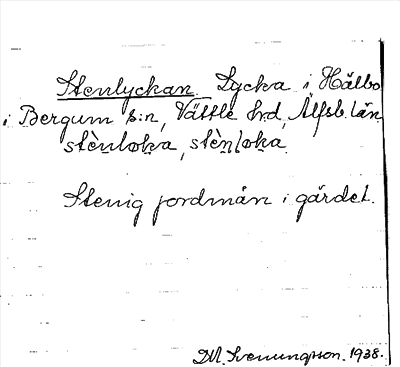 Stenlyckan. Lycka i Hålbo
i Bergum s:n, Vättle hrd, Älfsb. län
stènloka, stènloka.
Stenig jordmån i gärdet.
D.A. Svenungsson. 1938.